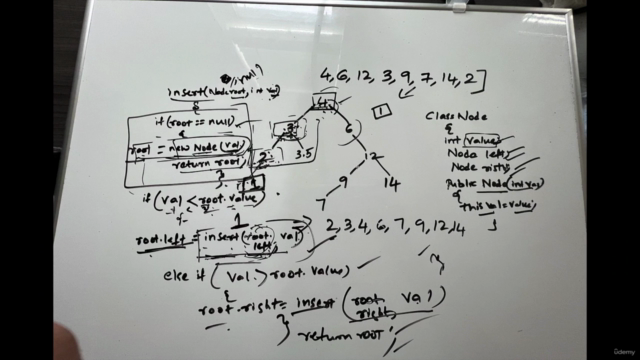 4, 6, 12, 3, 9, 7, 14, 2]
insert(Node root, int val)
{
if (root == null)
{
root = new Node(val)
return root;
}
if (val < root.value)
{
root.left = insert(root.left, val)
else if (val > root.value)
{
root.right = insert(root right, val)
}
return root;
4
1
3
6
2
3.5
12
9
14
7
2, 3, 4, 6, 7, 9, 12, 14
Class Node
{
int value;
Node left;
Node right;
Public Node(int val)
{
this.val = value;
}
udemy